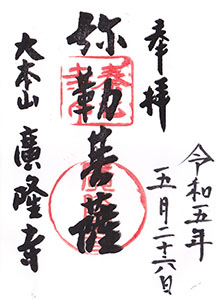 奉拝
令和五年
五月二十六日
弥勒菩薩
大本山 廣隆寺